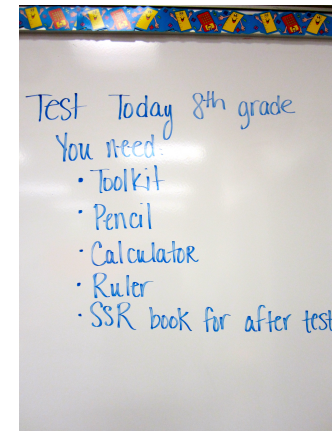 Test Today 8th grade
You need:
• Toolkit
• Pencil
• Calculator
• Ruler
• SSR book for after test